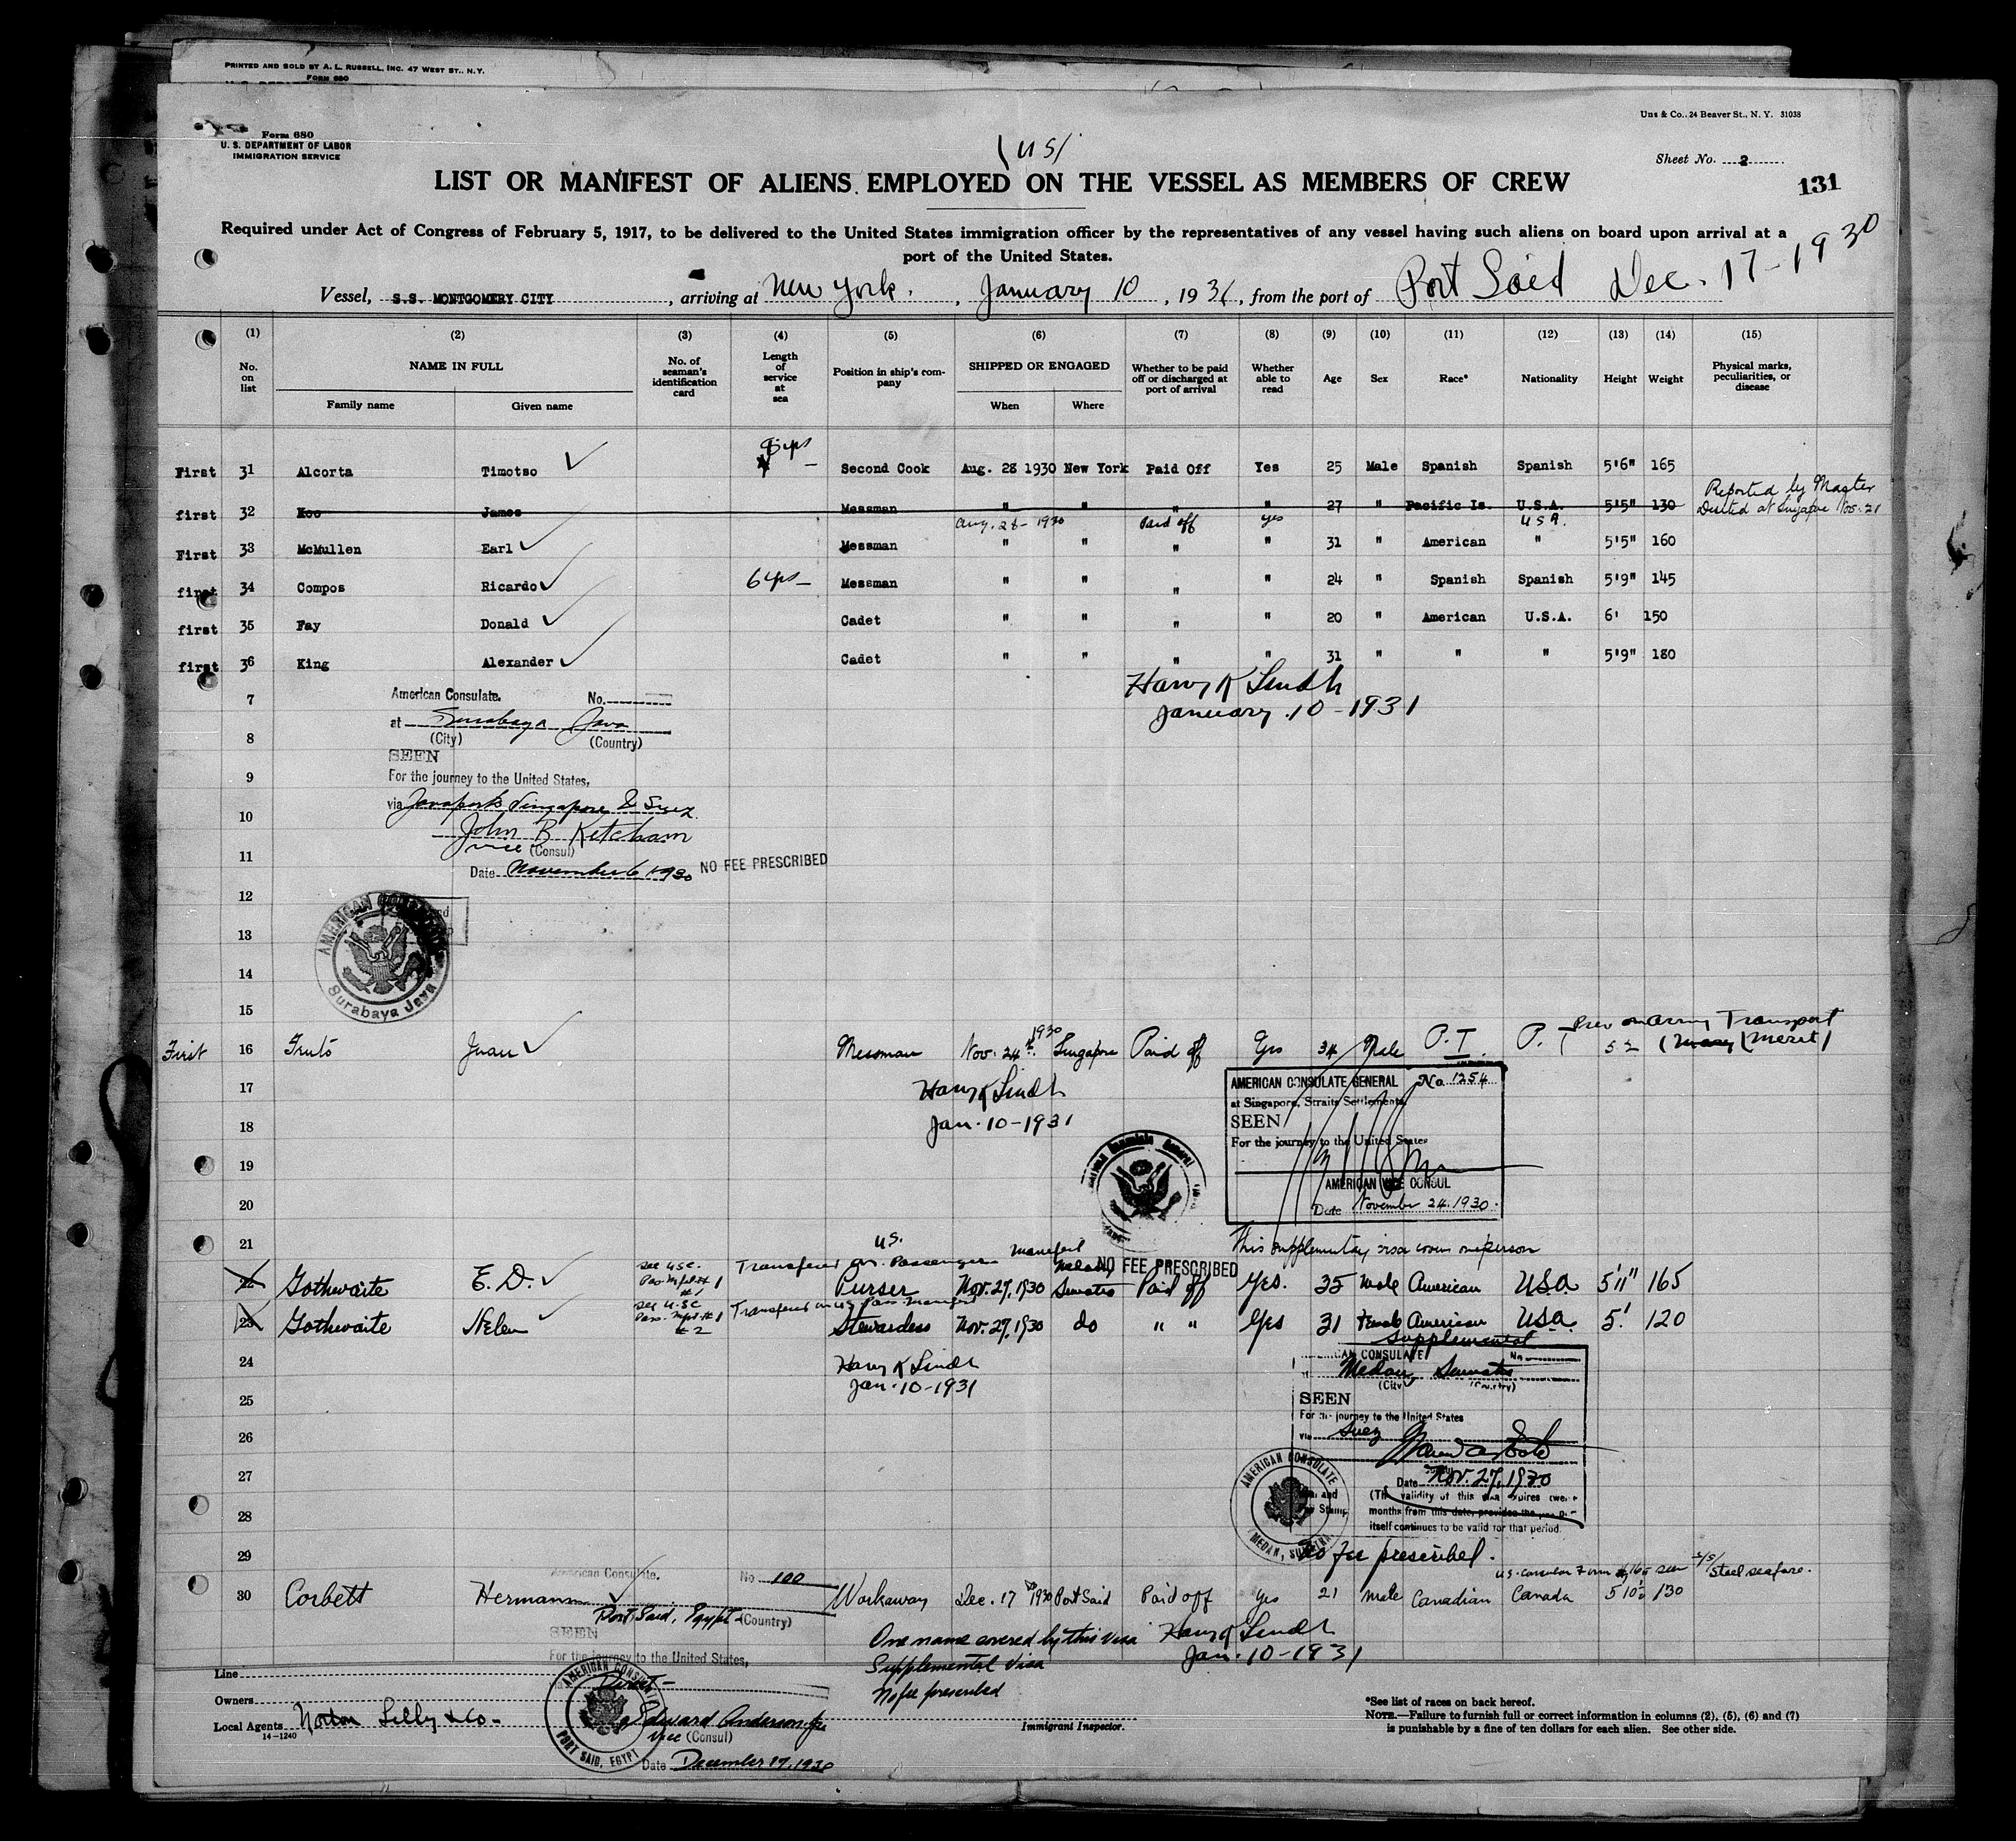 PRINTED AND SOLD BY A. L. RUSSELL, INC. 47 WEST ST., N. Y.
FORM 680
Uns & Co., 24 Beaver St., N. Y. 31038
Form 680
U. S. DEPARTMENT OF LABOR
IMMIGRATION SERVICE
(US)
Sheet No. 2
131
LIST OR MANIFEST OF ALIENS EMPLOYED ON THE VESSEL AS MEMBERS OF CREW
Required under Act of Congress of February 5, 1917, to be delivered to the United States immigration officer by the representatives of any vessel having such aliens on board upon arrival at a
port of the United States.
Vessel, S.S. MONTGOMERY CITY, arriving at New York., January 10, 1931, from the port of Port Said Dec. 17-1930
(1) (2) (3) (4) (5) (6) (7) (8) (9) (10) (11) (12) (13) (14) (15)
No. on list
NAME IN FULL
Family name Given name
No. of seaman's identification card
Length of service at sea
Position in ship's company
SHIPPED OR ENGAGED
When Where
Whether to be paid off or discharged at port of arrival
Whether able to read
Age Sex Race* Nationality Height Weight
Physical marks, peculiarities, or disease
First 31 Alcorta Timotso yrs Second Cook Aug. 28 1930 New York Paid Off Yes 25 Male Spanish Spanish 5'6" 165
Reported by Master
first 32 Koo James Messman " " " " 27 " Pacific Is. U.S.A. 5'5" 130 Deserted at Singapore Nov. 21
Aug. 28-1930 Paid off yes USA.
First 33 McMullen Earl Messman " " " " 31 " American " 5'5" 160
first 34 Compos Ricardo 6 yrs Messman " " " " 24 " Spanish Spanish 5'9" 145
first 35 Fay Donald Cadet " " " " 20 " American U.S.A. 6' 150
first 36 King Alexander Cadet " " " " 31 " " " 5'9" 180
Harry K Lindh
January 10-1931
7
American Consulate. No.
at Surabaya Java
8
(City) (Country)
SEEN
9
For the journey to the United States,
via Javaports Singapore & Suez
10
John B Ketcham
11
vice (Consul)
Date November 6 1930 NO FEE PRESCRIBED
12
AMERICAN
Surabaya Java
13
14
15
First 16 Juan Messman Nov. 24th 1930 Singapore Paid off Yes 34 Male P.I. P.I. 52
Prev on Army Transport
(Merit)
17
Harry K Lindh
18
Jan. 10-1931
AMERICAN CONSULATE GENERAL No 1254
at Singapore, Straits Settlements
SEEN
For the journey to the United States
19
AMERICAN VICE CONSUL
20
Date November 24. 1930.
21
This supplementary visa covers one person
NO FEE PRESCRIBED
see USC. Pas. Mfst # 1 #1
Transferred on U.S. Passenger Manifest
22 Gothwaite E. D. Purser Nov. 27, 1930 Sumatra Paid off Yes. 35 male American USA 5'11" 165
see U.S.C Pass. Mfst #1 #2
Transferred on US Pass. Manifest
23 Gothwaite Helen Stewardess Nov. 27, 1930 do " " Yes 31 Female American USA. 5' 120
Supplemental
24
Harry K Lindh
Jan. 10-1931
25
CONSULATE No.
Medan, Sumatra
(City) (Country)
SEEN
For the journey to the United States
26
via Suez
27
Date Nov. 27, 1930
(The validity of this visa expires twelve
months from this date, provided the
28
itself continues to be valid for that period.
AMERICAN CONSULATE
MEDAN, SUMATRA
29
No fee prescribed.
American Consulate. No 100
30 Corbett Hermann Workaway Dec. 17 1930 Port Said Paid off Yes 21 male Canadian Canada 5 10½ 130
Port Said, Egypt (Country)
SEEN
For the journey to the United States,
Direct-
One name covered by this visa
Supplemental Visa
No fee prescribed
Harry K Lindh
Jan. 10-1931
Line
Owners
Local Agents Norton Lilly & Co-
14-1240
AMERICAN CONSULATE
PORT SAID, EGYPT
Edward Anderson Jr
Vice (Consul)
Date December 17, 1930
Immigrant Inspector.
*See list of races on back hereof.
NOTE.—Failure to furnish full or correct information in columns (2), (5), (6) and (7)
is punishable by a fine of ten dollars for each alien. See other side.